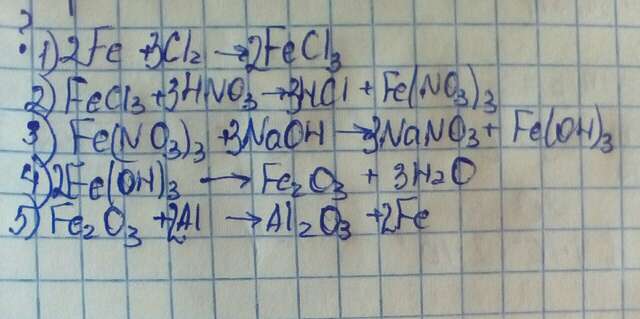 ?
1) 2Fe + 3Cl₂ → 2FeCl₃
2) FeCl₃ + 3HNO₃ → 3HCl + Fe(NO₃)₃
3) Fe(NO₃)₃ + 3NaOH → 3NaNO₃ + Fe(OH)₃
4) 2Fe(OH)₃ → Fe₂O₃ + 3H₂O
5) Fe₂O₃ + 2Al → Al₂O₃ + 2Fe